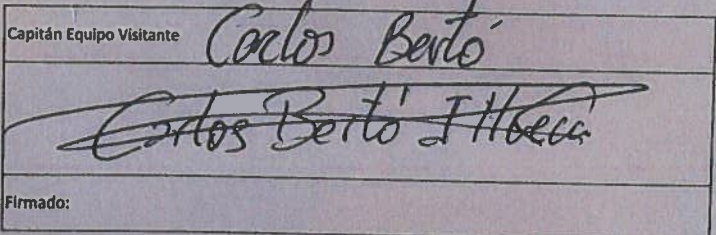 Capitán Equipo Visitante Carlos Bertó
Carlos Bertó
Firmado: